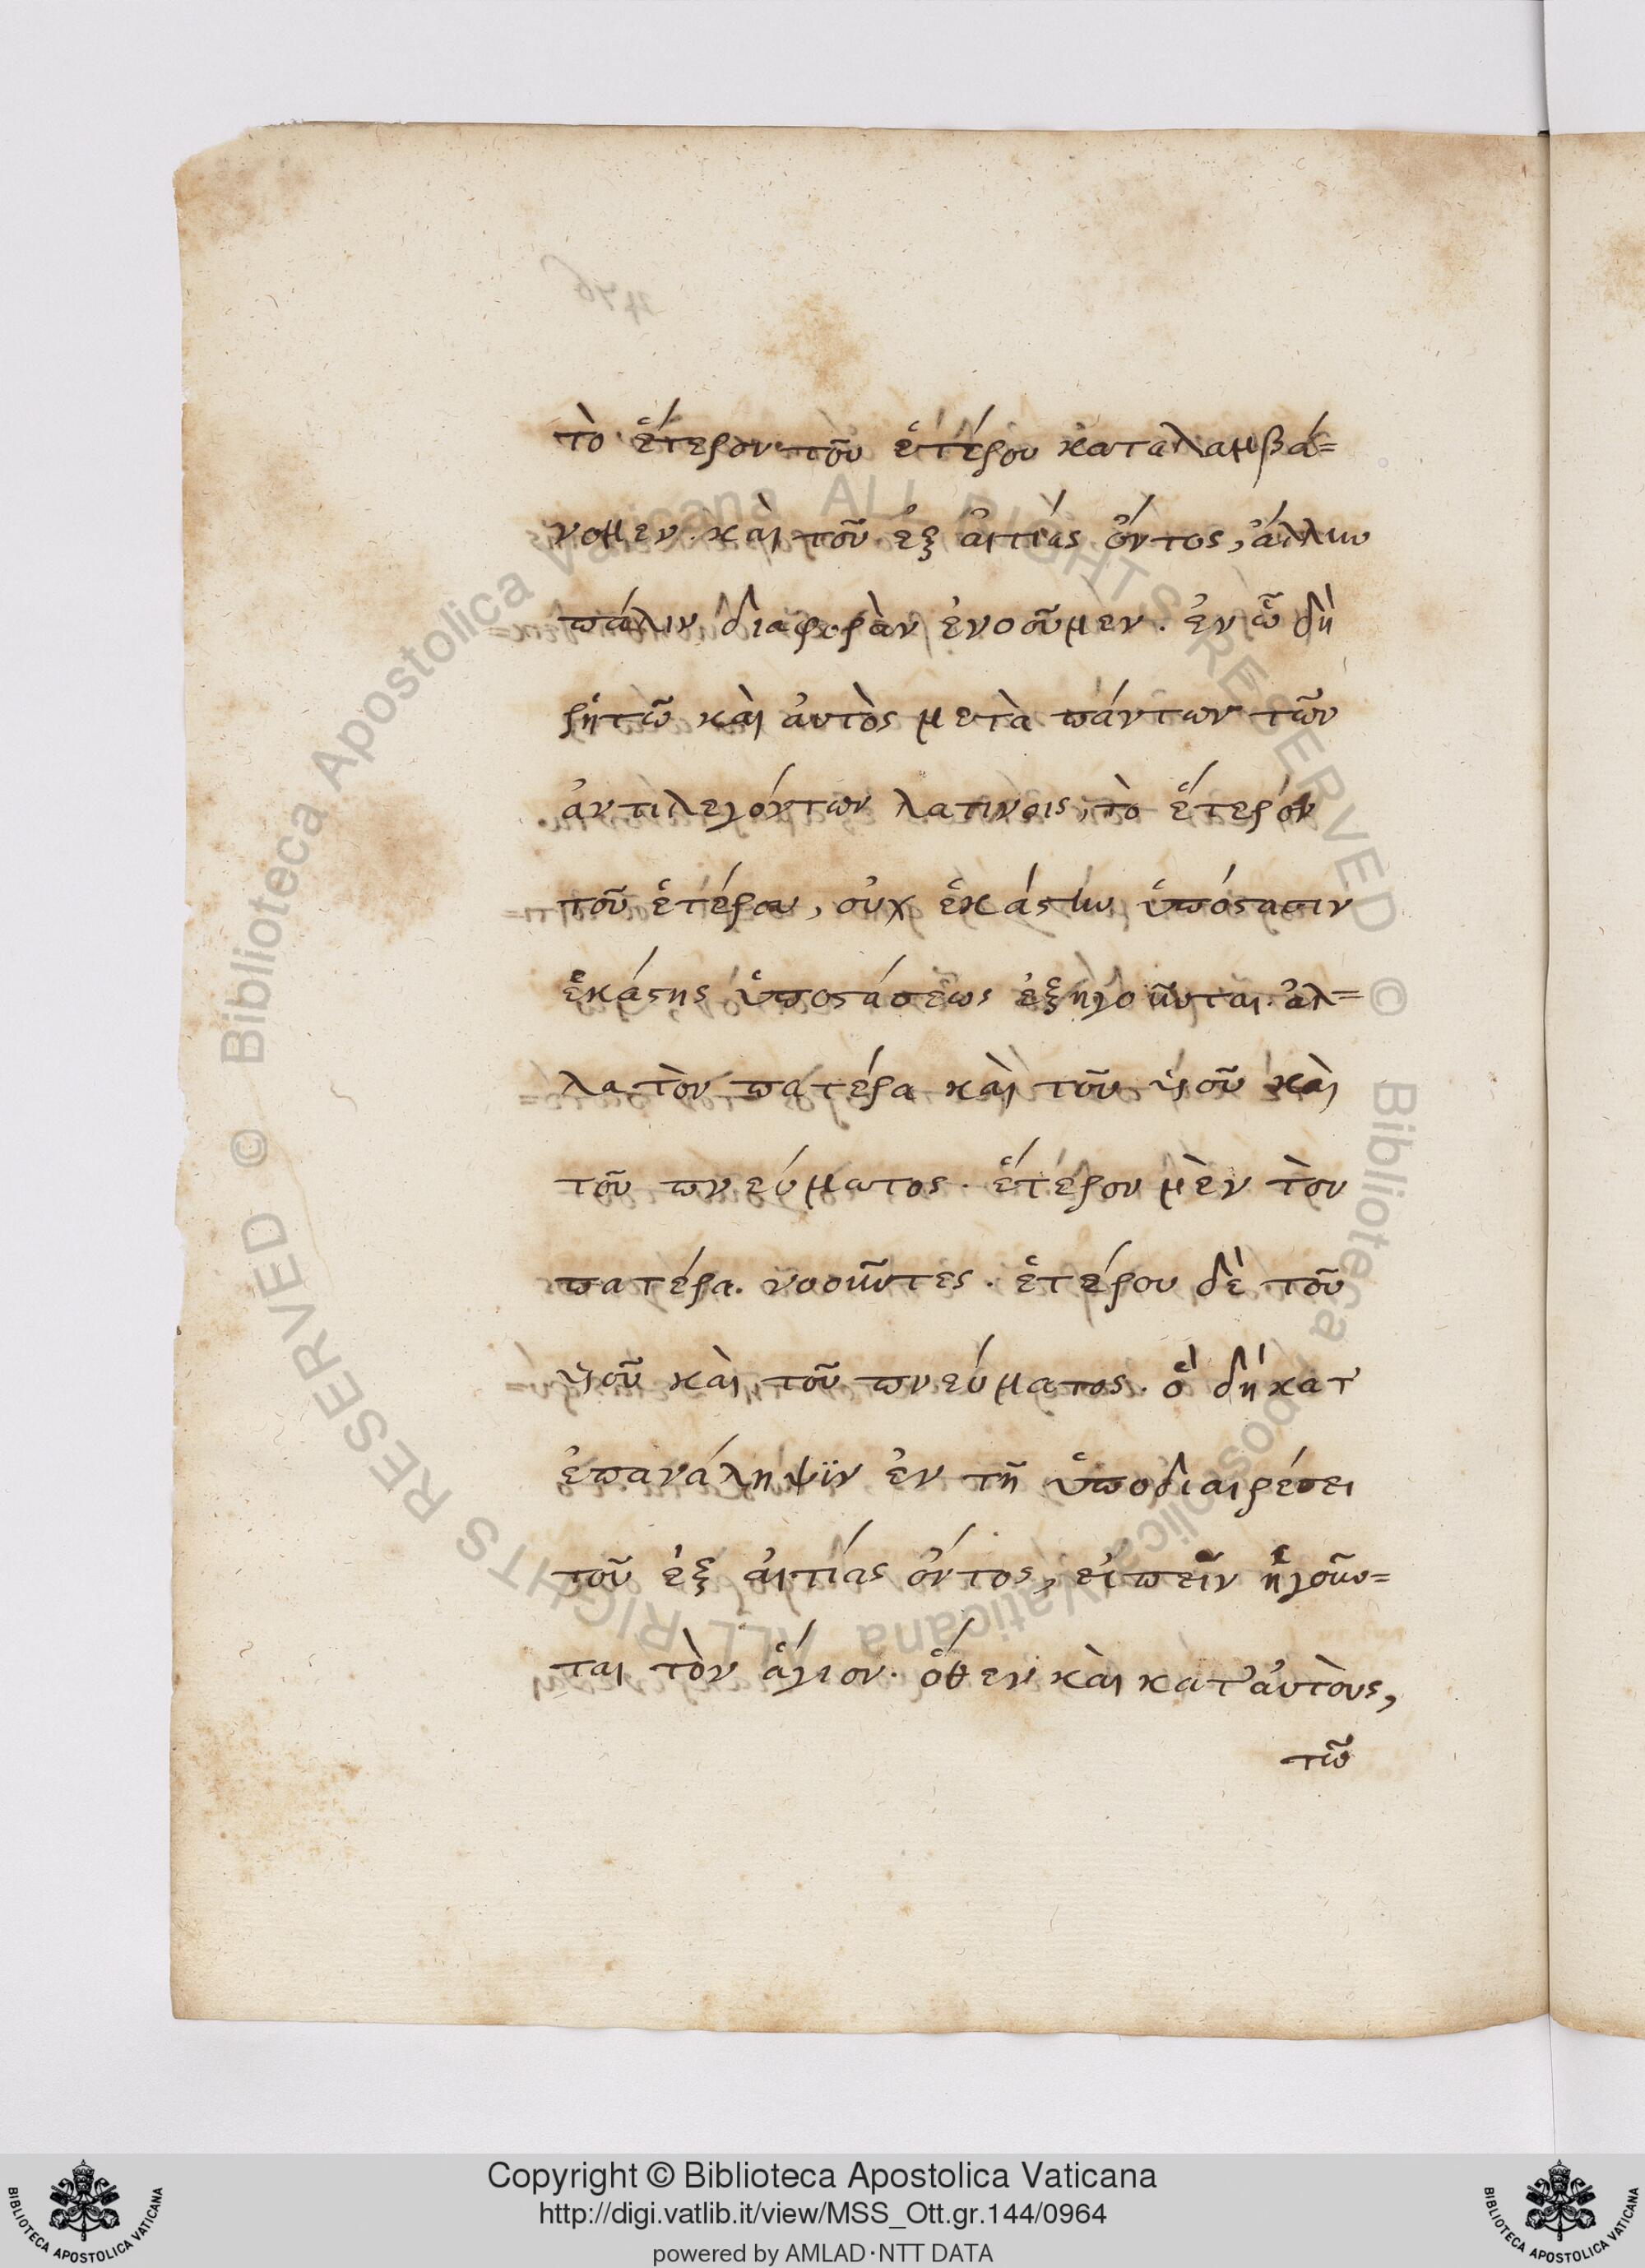 τὸ ἕτερον τοῦ ἑτέρου καταλαμβά=
νομεν. καὶ τοῦ ἐξ ἀιτίας ὄντος, ἄλλην
πάλιν διαφορὰν ἐνοοῦμεν. ἐν ᾧ δὴ
ῥητῶ καὶ ἀυτὸς μετὰ πάντων τῶν
ἀντιλεγόντων λατίνοις, τὸ ἕτερόν
τοῦ ἑτέρου, οὐχ ἑκάστην ὑπόστασιν
ἑκάστης ὑποστάσεως ἐξηγοῦνται. ἀλ=
λα τὸν πατέρα καὶ τοῦ υἱοῦ καὶ
τοῦ πνεύματος. ἑτέρου μὲν τὸν
πατέρα. νοοῦντες. ἑτέρου δὲ τοῦ
υἱοῦ καὶ τοῦ πνεύματος. ὃ δὴ κατ
ἐπανάληψϊν ἐν τῆ ὑποδιαιρέσει
τοῦ ἐξ ἀιτίας ὄντος, εἰπεῖν ἡγοῦν=
ται τὸν ἅγιον. ὅθεν καὶ κατ' ἀυτοὺς,
τῶ
Copyright © Biblioteca Apostolica Vaticana
http://digi.vatlib.it/view/MSS_Ott.gr.144/0964
powered by AMLAD·NTT DATA
BIBLIOTECA APOSTOLICA VATICANA
BIBLIOTECA APOSTOLICA VATICANA
© Biblioteca Apostolica Vaticana ALL RIGHTS RESERVED
© Biblioteca Apostolica Vaticana ALL RIGHTS RESERVED